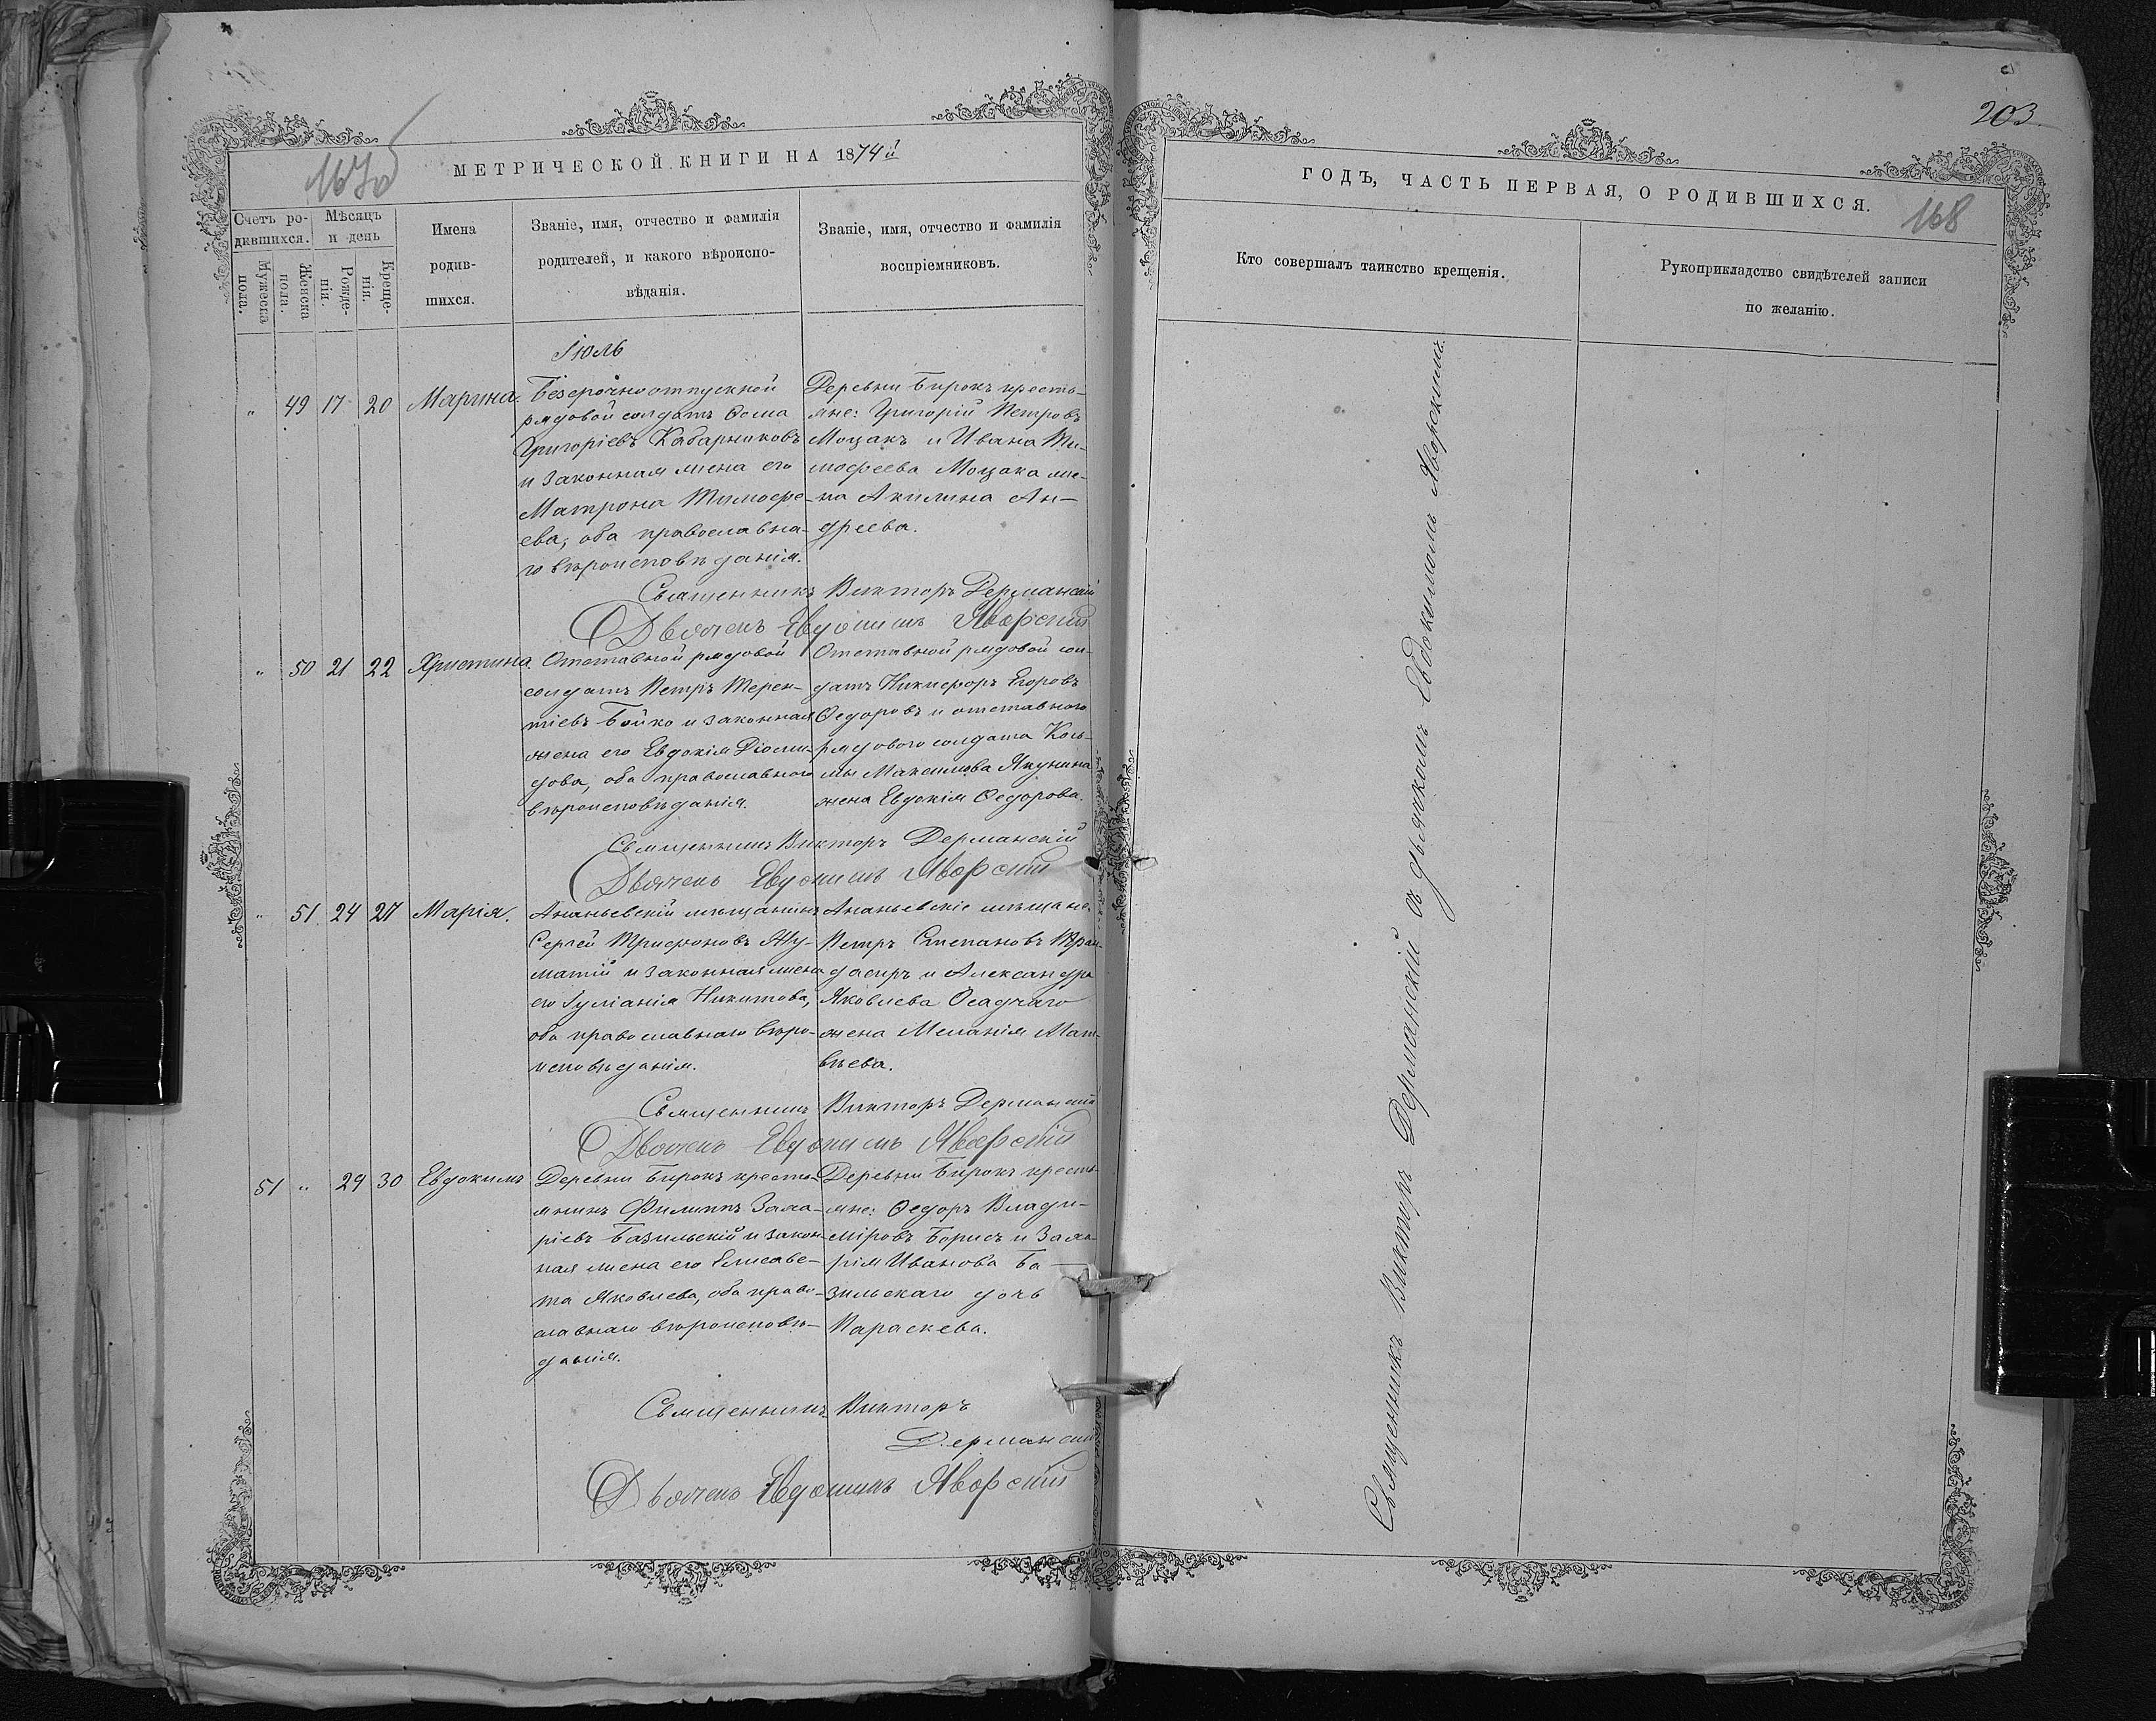 203
1670
МЕТРИЧЕСКОЙ КНИГИ НА 1874й
ГОДЪ, ЧАСТЬ ПЕРВАЯ, О РОДИВШИХСЯ.
168
Счетъ ро-
дившихся.
Мужеска
пола.
Женска
пола.
Мѣсяцъ
и день
Рожде-
нія.
Креще-
нія.
Имена
родив-
шихся.
Званіе, имя, отчество и фамилія
родителей, и какого вѣроиспо-
вѣданія.
Званіе, имя, отчество и фамилія
воспріемниковъ.
Кто совершалъ таинство крещенія.
Рукоприкладство свидѣтелей записи
по желанію.
Іюль
„ 49 17 20 Марина.
Безсрочноотпускной
рядовой солдатъ Ѳома
Григоріевъ Кабарниковъ
и законная жена его
Матрона Тимоѳе-
ева, оба православна-
го вѣроисповѣданія.
Деревни Бирокъ кресть-
яне: Григорій Петровъ
Моцакъ и Ивана Ти-
моѳеева Моцака же-
на Акилина Ан-
дреева.
Священникъ Викторъ Дерманскій
Дьячекъ Евдокимъ Яворскій
„ 50 21 22 Христина.
Отставной рядовой
солдатъ Петръ Терен-
тіевъ Бойко и законная
жена его Евдокія Діоми-
дова, оба православного
вѣроисповѣданія.
Отставной рядовой сол-
датъ Никифоръ Егоровъ
Ѳедоровъ и отставного
рядового солдата Козь-
мы Максимова Якунина
жена Евдокія Ѳедорова.
Священникъ Викторъ Дерманскій
Дьячекъ Евдокимъ Яворскій
„ 51 24 27 Марія.
Ананьевскій мѣщанинъ
Сергѣй Трифоновъ
и законная жена
его Гуліанія Никитова,
оба православнаго вѣро-
исповѣданія.
Ананьевскіе мѣщане:
Петръ Степановъ
и Александра
Яковлева Осадчаго
жена Меланія Мат-
вѣева.
Священникъ Викторъ Дерманскій
Дьячекъ Евдокимъ Яворскій
51 „ 29 30 Евдокимъ
Деревни Бирокъ кресть-
янинъ Филиппъ Заха-
ріевъ Базильскій и закон-
ная жена его Елисаве-
та Яковлева, оба право-
славнаго вѣроисповѣ-
данія.
Деревни Бирокъ кресть-
яне: Ѳедоръ Влади-
міровъ Борисъ и Заха-
рія Иванова Ба-
зильскаго дочь
Параскева.
Священникъ Викторъ
Дерманскій
Дьячекъ Евдокимъ Яворскій
Священникъ Викторъ Дерманскій съ дьячкомъ Евдокимомъ Яворскимъ.